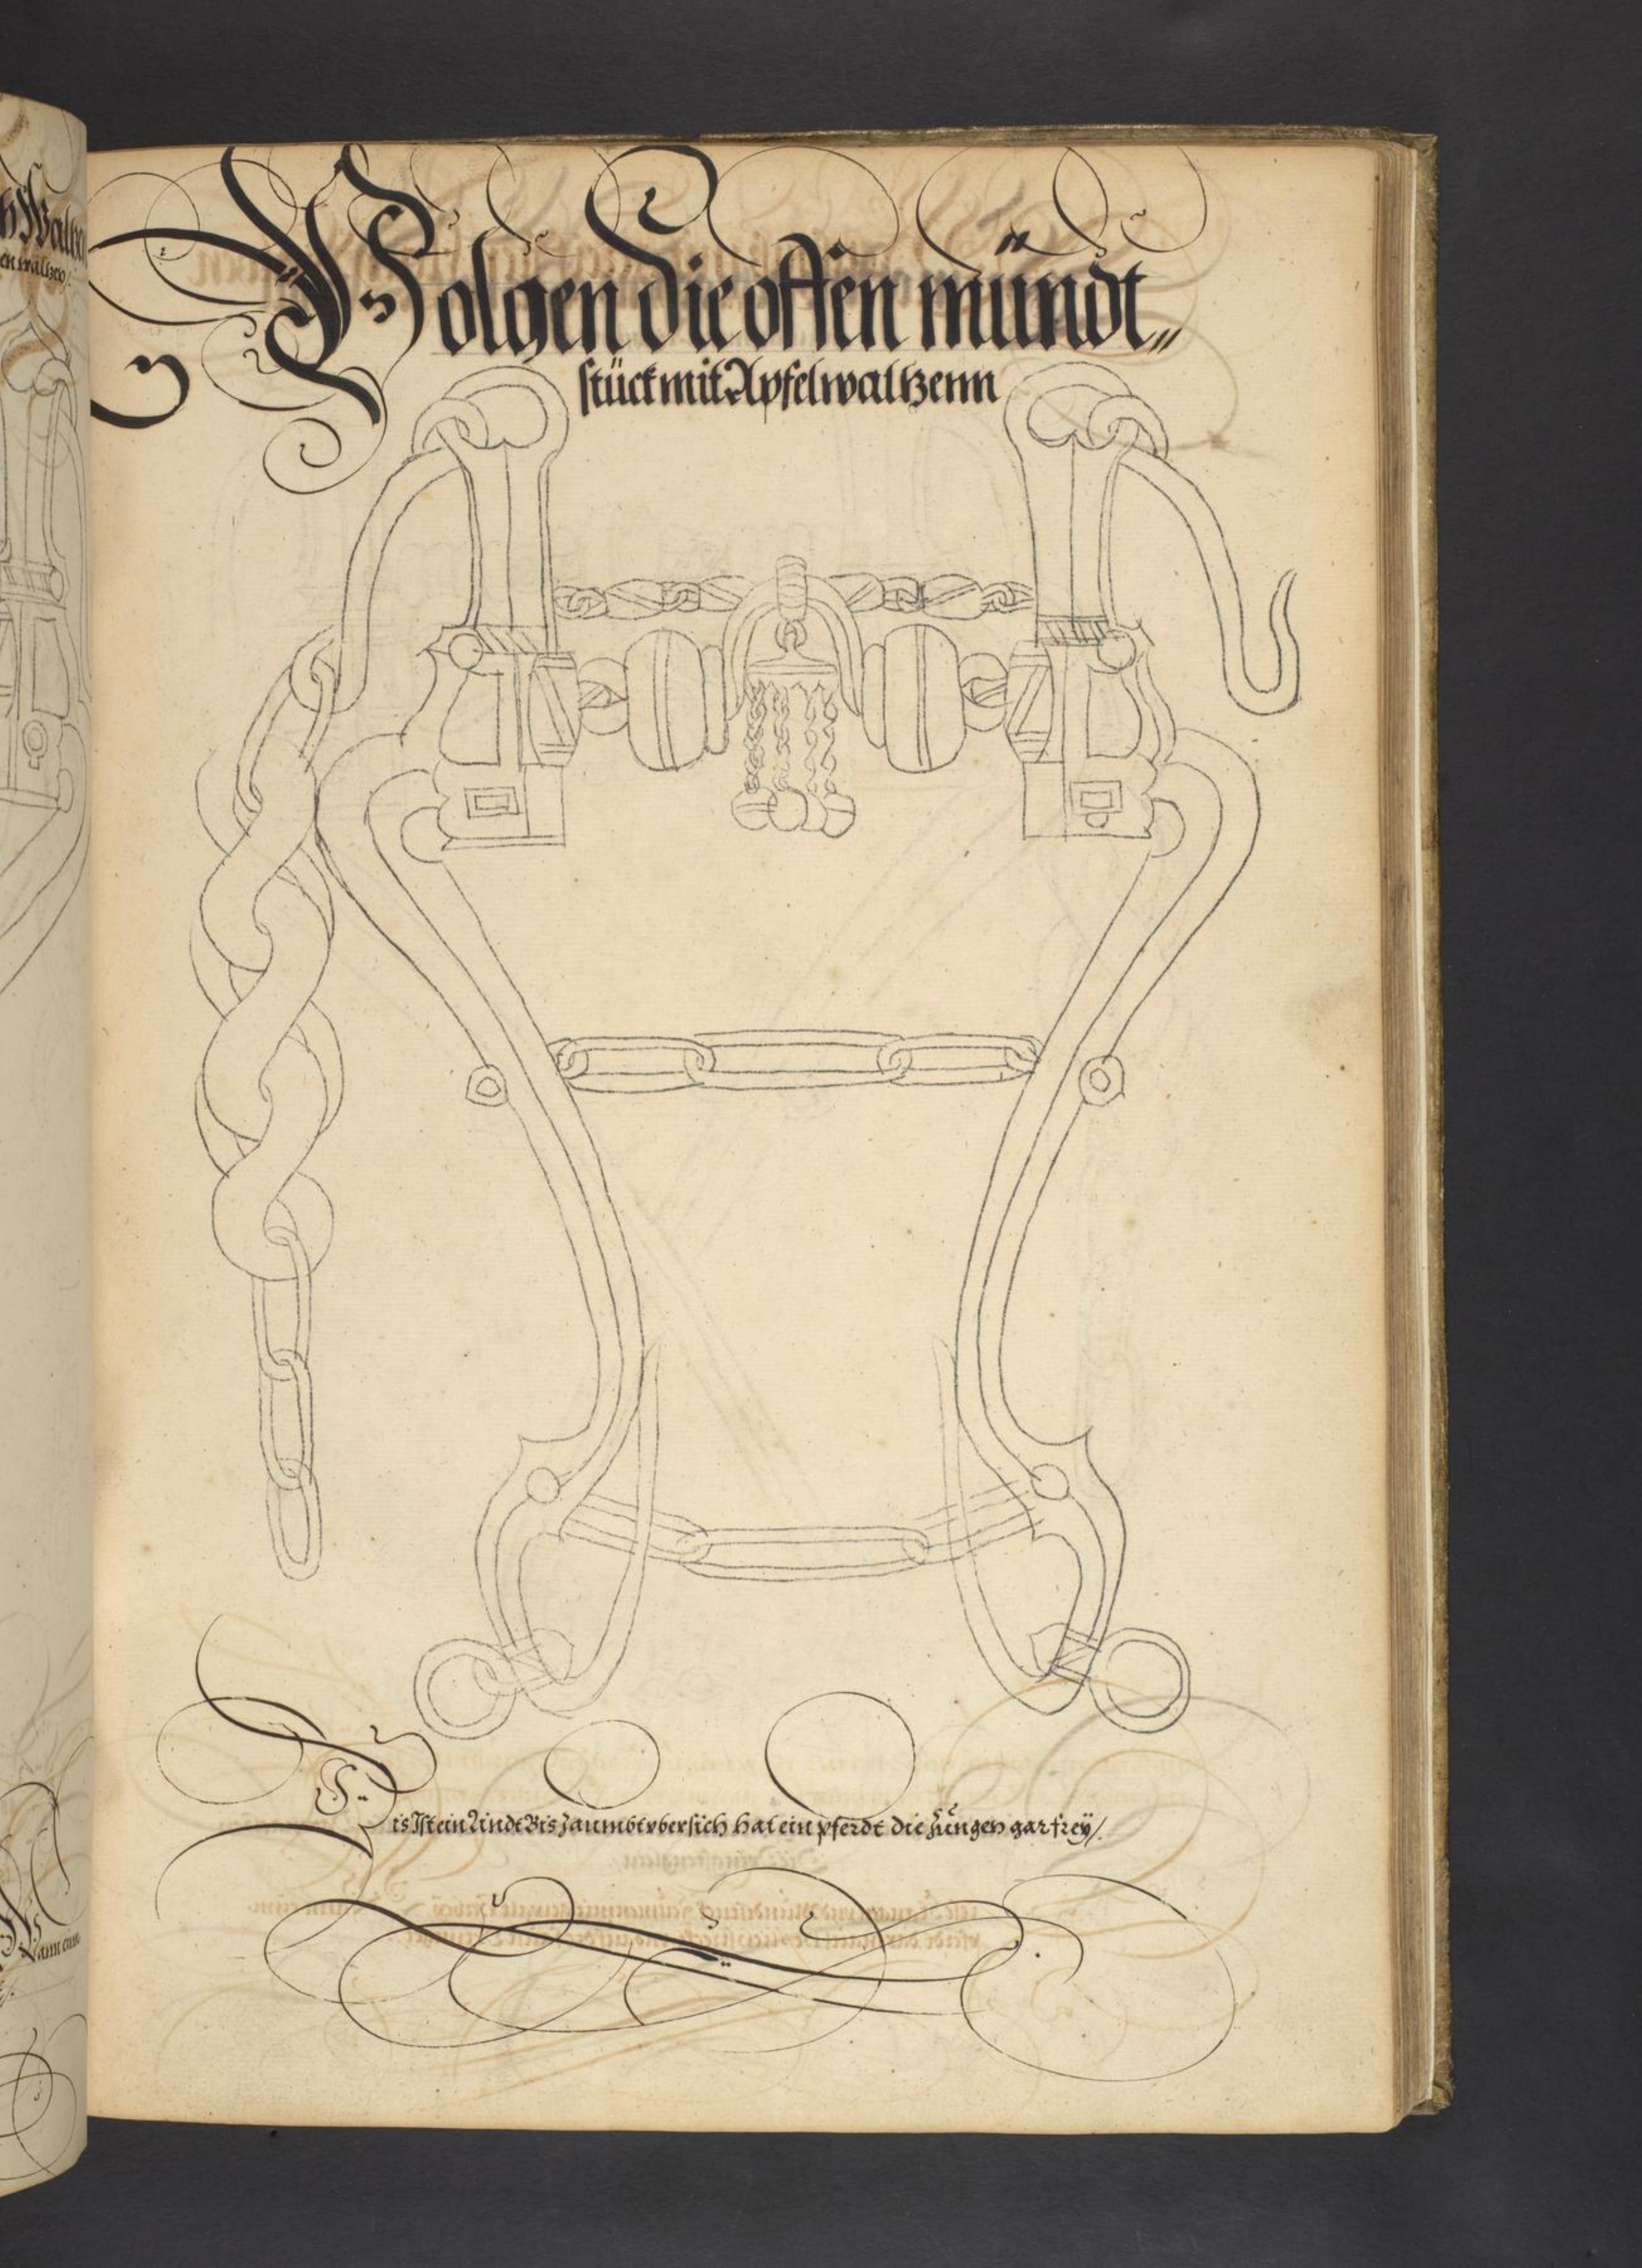 Volgen die offen mündt„
stück mit Apfelwaltzenn
is Ist ein lindt Bis Zaumbt vbersich hat ein pferdt die Züngen gar freÿ/.